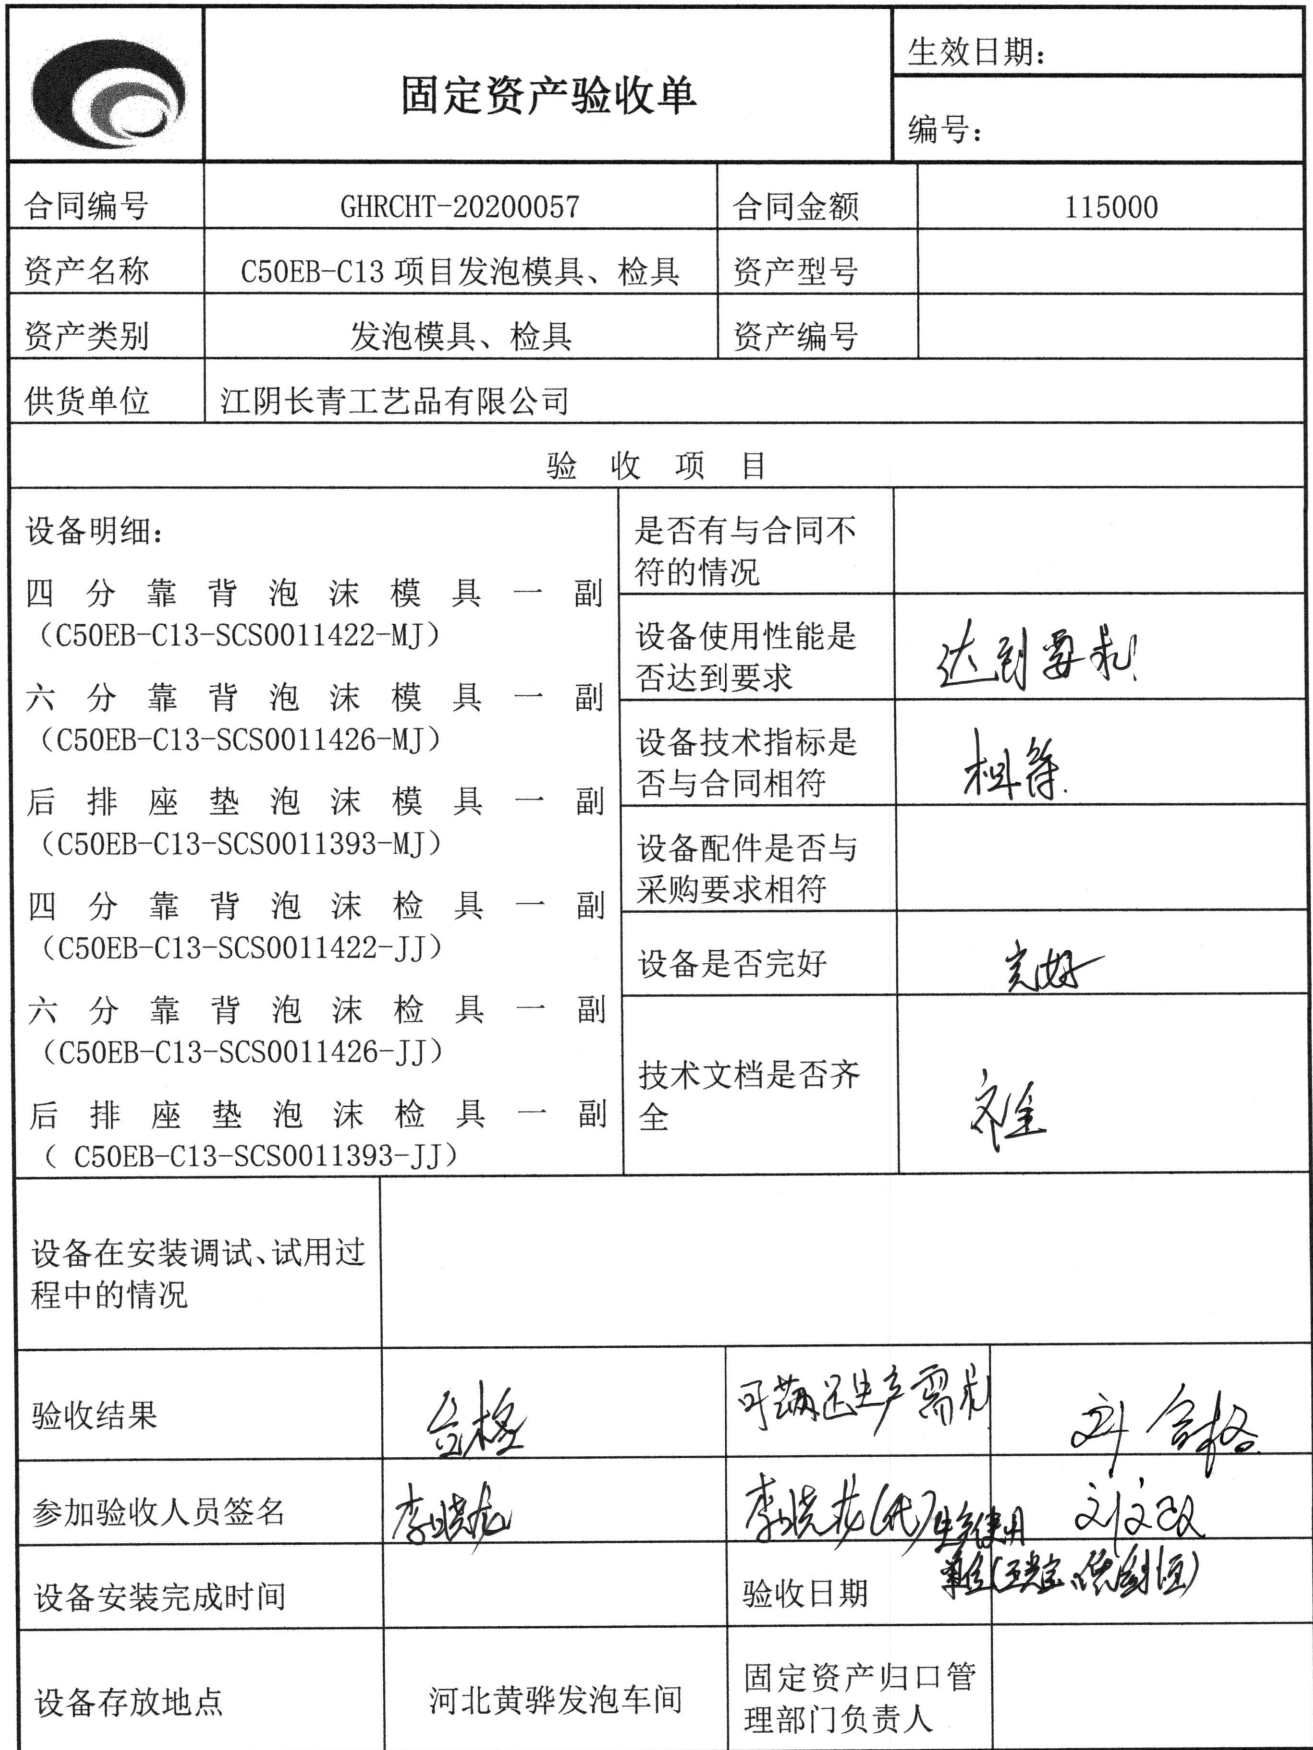 固定资产验收单
生效日期：
编号：
合同编号 GHRCHT-20200057 合同金额 115000
资产名称 C50EB-C13 项目发泡模具、检具 资产型号
资产类别 发泡模具、检具 资产编号
供货单位 江阴长青工艺品有限公司
验 收 项 目
设备明细：
四分靠背泡沫模具一副
（C50EB-C13-SCS0011422-MJ）
六分靠背泡沫模具一副
（C50EB-C13-SCS0011426-MJ）
后排座垫泡沫模具一副
（C50EB-C13-SCS0011393-MJ）
四分靠背泡沫检具一副
（C50EB-C13-SCS0011422-JJ）
六分靠背泡沫检具一副
（C50EB-C13-SCS0011426-JJ）
后排座垫泡沫检具一副
（ C50EB-C13-SCS0011393-JJ）
是否有与合同不
符的情况
设备使用性能是
否达到要求
达到要求！
设备技术指标是
否与合同相符
相符.
设备配件是否与
采购要求相符
设备是否完好
完好
技术文档是否齐
全
齐全
设备在安装调试、试用过
程中的情况
验收结果 合格 可满足生产需求 合格
参加验收人员签名 李晓龙 李晓龙(代) 生产使用
单位
设备安装完成时间 验收日期
设备存放地点 河北黄骅发泡车间
固定资产归口管
理部门负责人